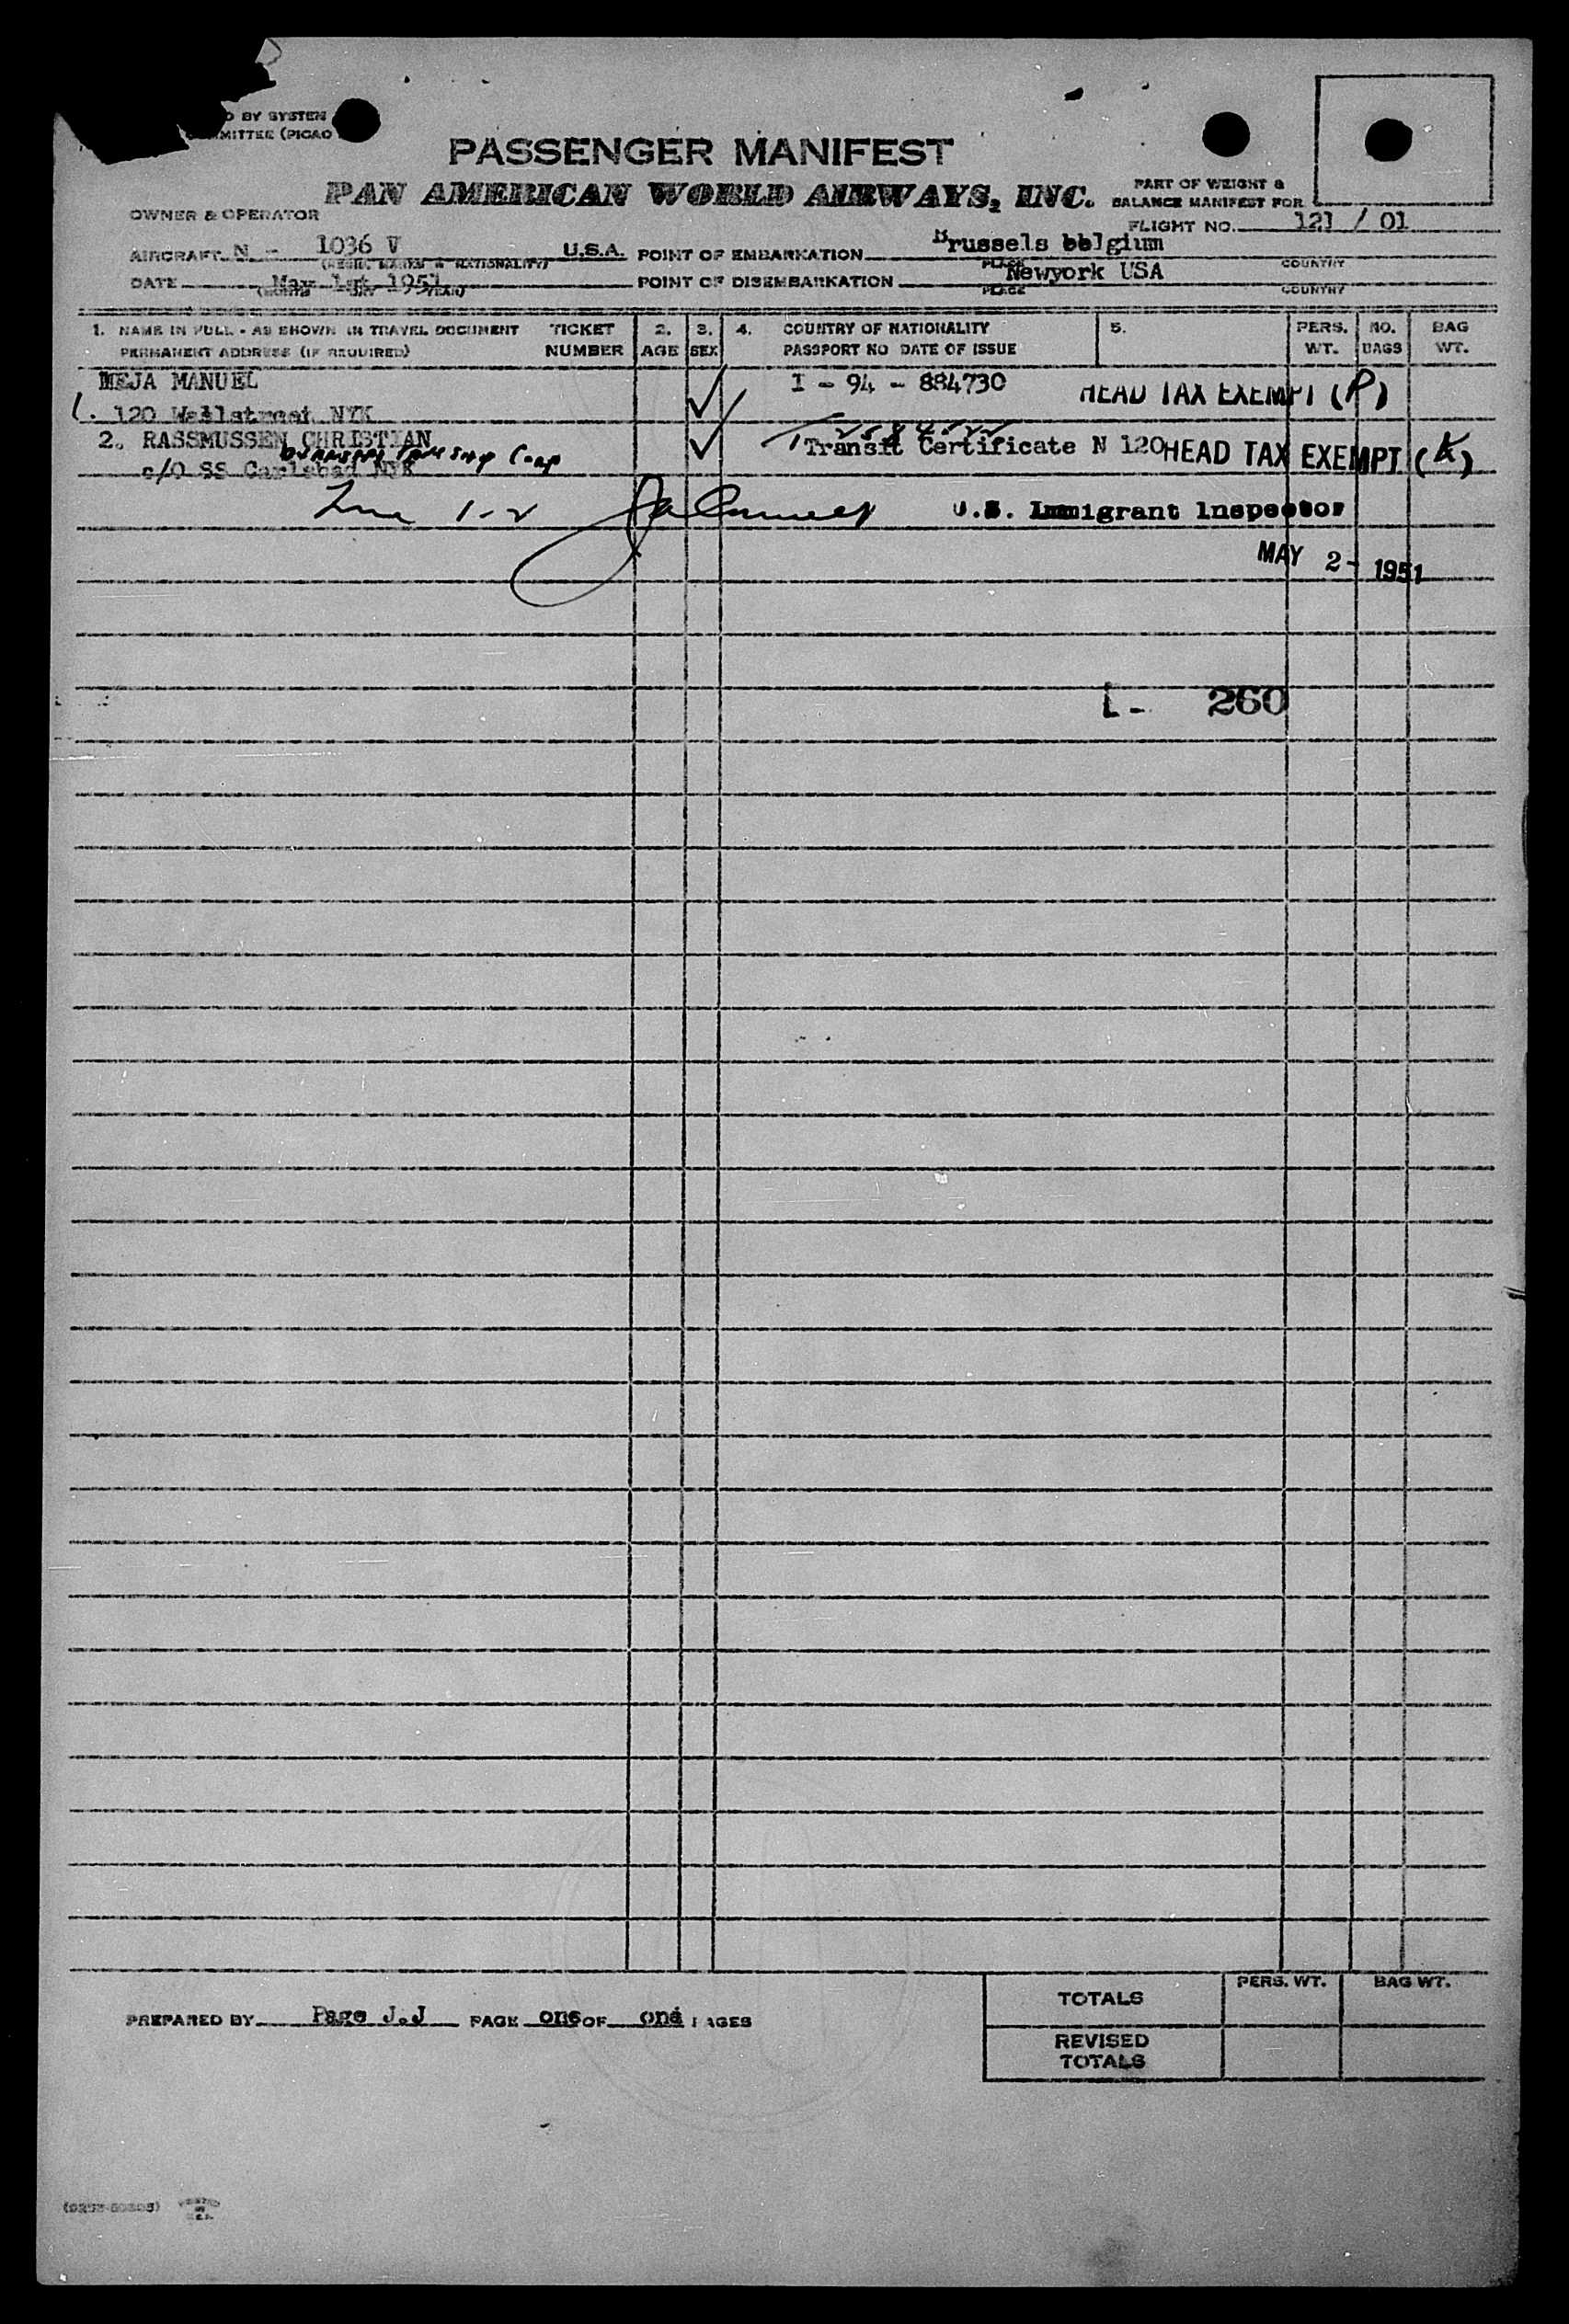 D BY SYSTEM
MMITTEE (PICAO
PASSENGER MANIFEST
PAN AMERICAN WORLD AIRWAYS, INC.
PART OF WEIGHT &
BALANCE MANIFEST FOR
OWNER & OPERATOR
FLIGHT NO. 121 / 01
AIRCRAFT N - 1036 V U.S.A. POINT OF EMBARKATION Brussels bblgium
(REGIS. MARKS & NATIONALITY) PLACE COUNTRY
DATE May 1st 1951 POINT OF DISEMBARKATION Newyork USA
(MONTH DAY YEAR) PLACE COUNTRY
1. NAME IN FULL - AS SHOWN IN TRAVEL DOCUMENT TICKET 2. 3. 4. COUNTRY OF NATIONALITY 5. PERS. NO. BAG
PERMANENT ADDRESS (IF REQUIRED) NUMBER AGE SEX PASSPORT NO DATE OF ISSUE WT. BAGS WT.
MEJA MANUEL I - 94 - 884730 HEAD TAX EXEMPT (P)
1. 120 Wallstreet NYK
2. RASSMUSSEN CHRISTIAN Transit Certificate N 120 HEAD TAX EXEMPT (K)
c/O SS Carlsbad NYK
Line 1-2 U.S. Immigrant Inspector
MAY 2- 1951
L - 260
TOTALS PERS. WT. BAG WT.
PREPARED BY Page J.J PAGE one OF one PAGES
REVISED
TOTALS